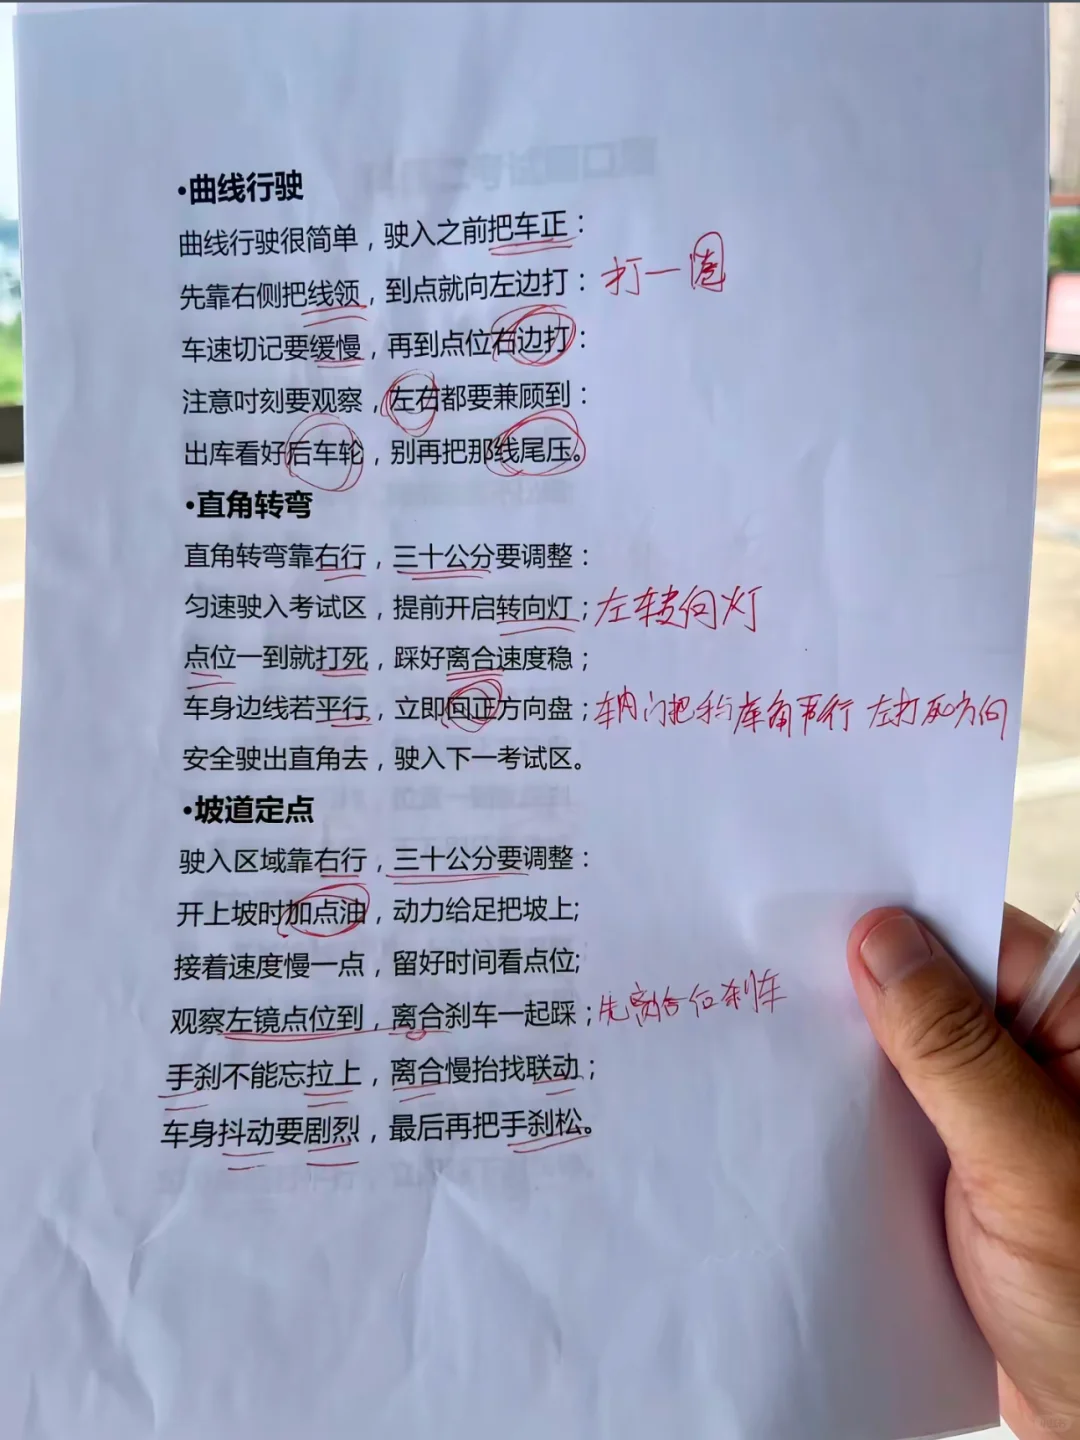 •曲线行驶
曲线行驶很简单，驶入之前把车正：
先靠右侧把线领，到点就向左边打： 打一圈
车速切记要缓慢，再到点位右边打：
注意时刻要观察，左右都要兼顾到：
出库看好后车轮，别再把那线尾压。
•直角转弯
直角转弯靠右行，三十公分要调整：
匀速驶入考试区，提前开启转向灯； 左转向灯
点位一到就打死，踩好离合速度稳；
车身边线若平行，立即回正方向盘； 车内门把手与库角平行 左打死方向
安全驶出直角去，驶入下一考试区。
•坡道定点
驶入区域靠右行，三十公分要调整：
开上坡时加点油，动力给足把坡上;
接着速度慢一点，留好时间看点位;
观察左镜点位到，离合刹车一起踩； 先离合后刹车
手刹不能忘拉上，离合慢抬找联动；
车身抖动要剧烈，最后再把手刹松。